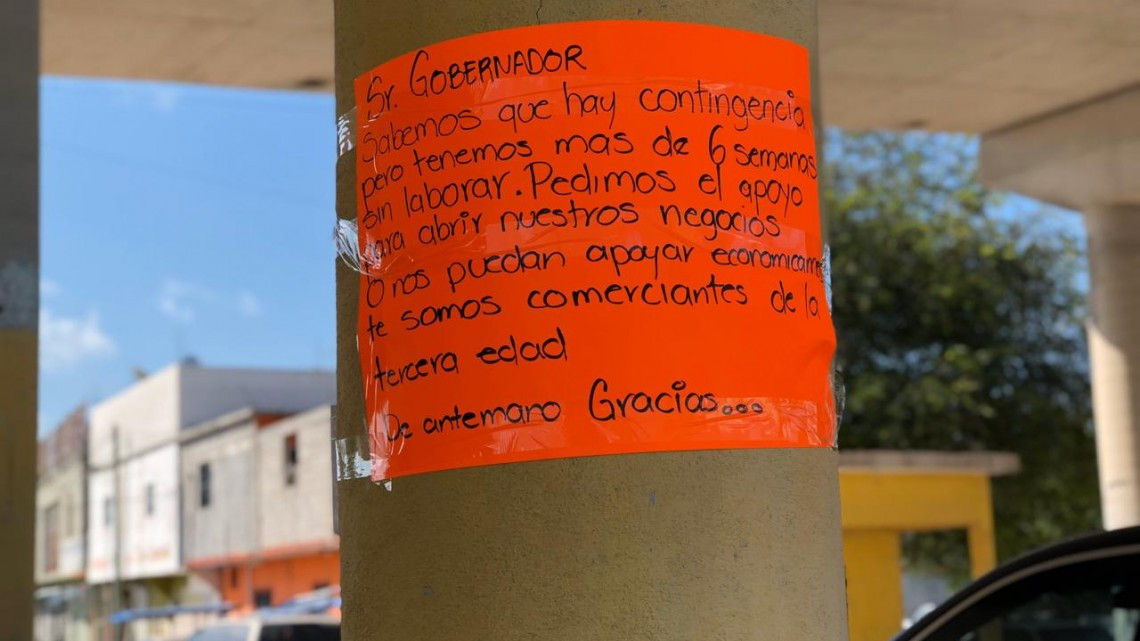 Sr. GOBERNADOR
Sabemos que hay contingencia
pero tenemos mas de 6 semanas
sin laborar. Pedimos el apoyo
para abrir nuestros negocios
O nos puedan apoyar economicamen
te somos comerciantes de la
tercera edad
De antemano Gracias...